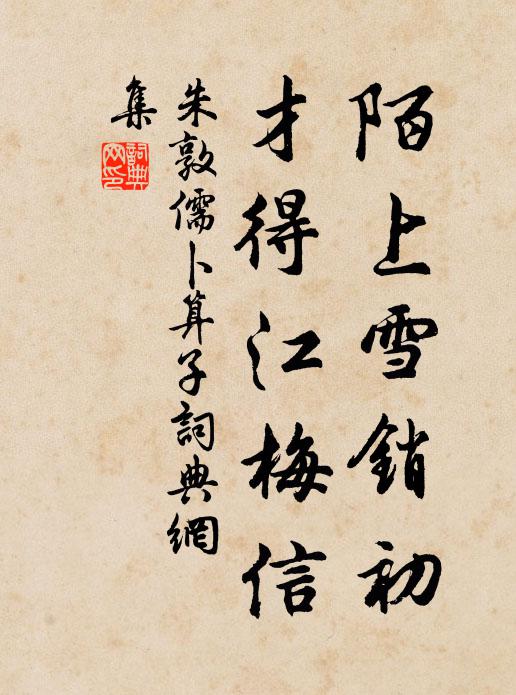 陌上雪銷初
才得江梅信
朱敦儒卜算子詞典網
集
詞典
网印